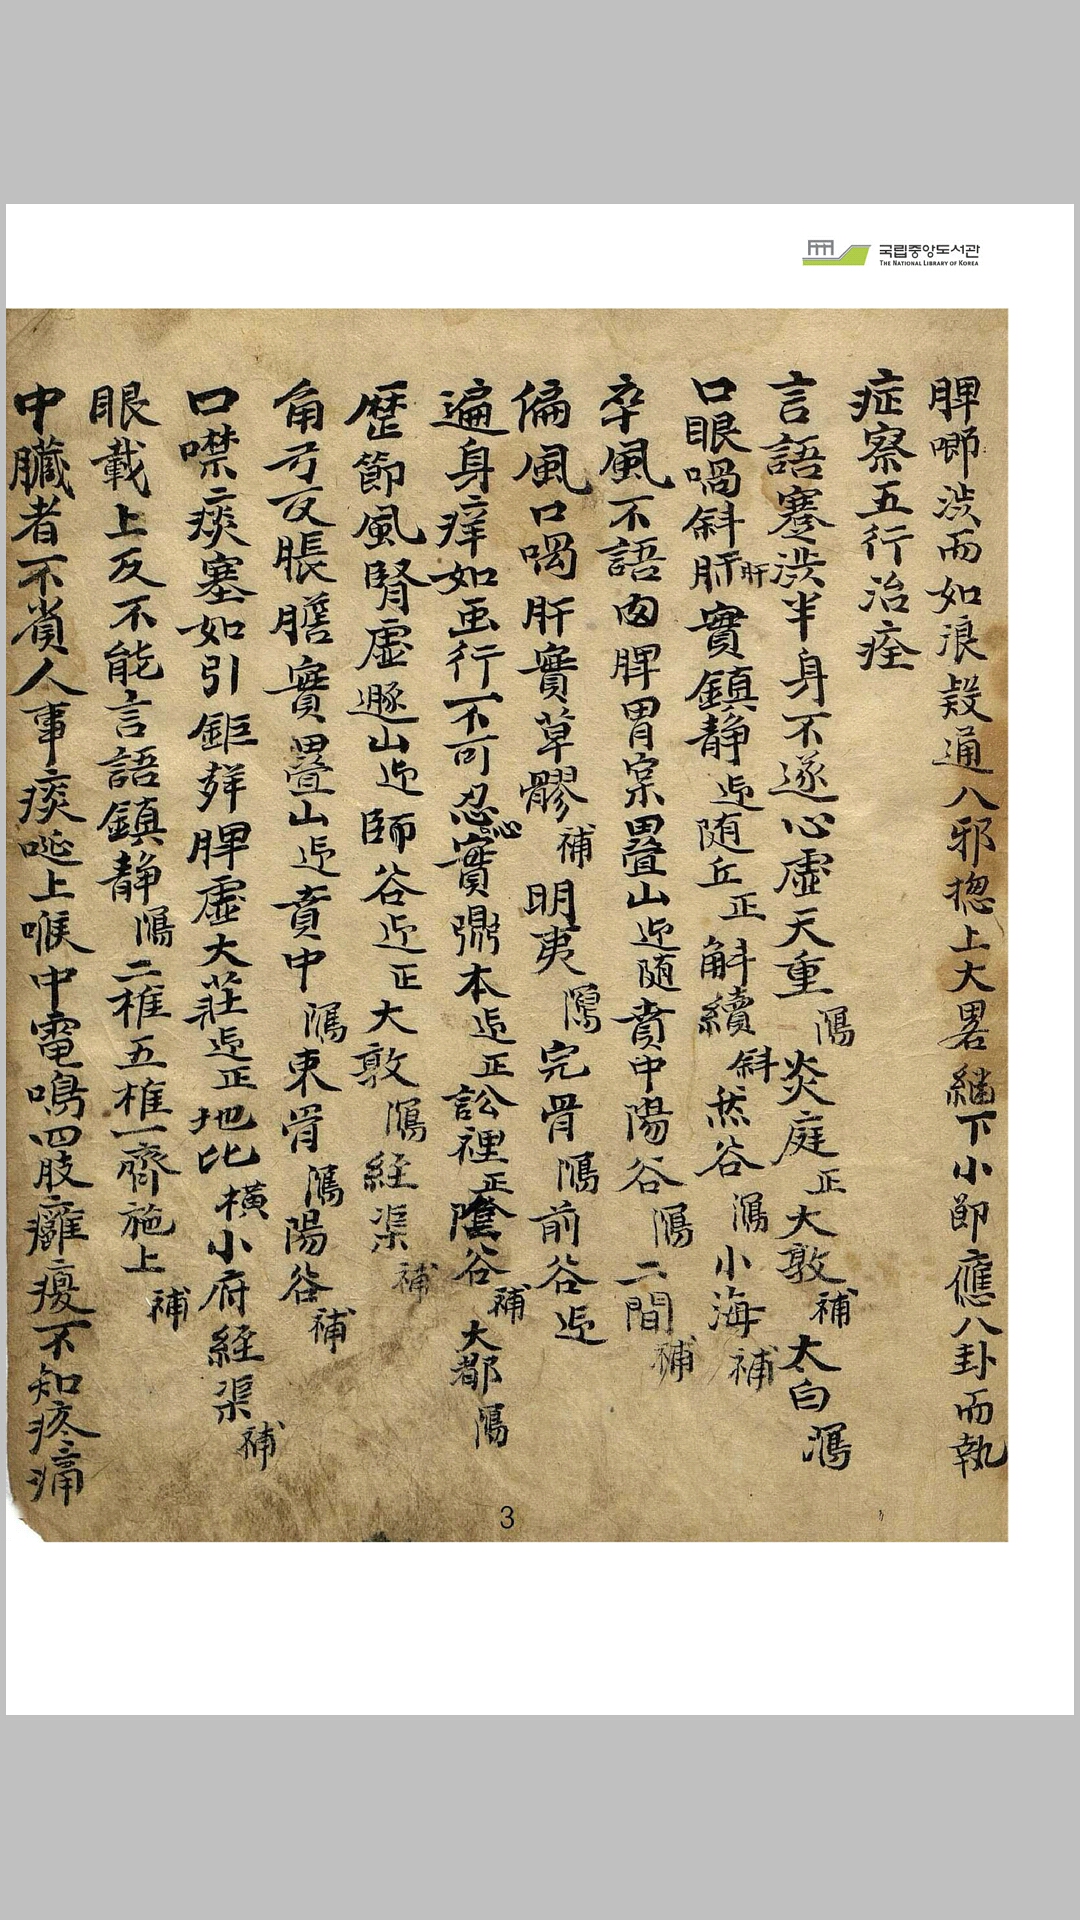 국립중앙도서관
THE NATIONAL LIBRARY OF KOREA
脾啷渋而如浪殺通八邪揔上大畧繼下小節應八卦而執
症察五行治痊
言語蹇渋半身不遂心虛天重瀉炎庭正大敦補太白瀉
口眼喎斜肝肝實鎮静迎随丘正斛續斜然谷瀉小海補
卒風不語囟脾胃寀疊山迎随賁中陽谷瀉二間補
偏風口喝肝實草髎補明夷瀉完骨瀉前谷迎
遍身痒如虫行不可忍心實鼎本迎正訟裡正陰谷補大都瀉
歷節風腎虛遯山迎師谷迎正大敦瀉経渠補
角弓反脹膽實疊山迎賁中瀉束骨瀉陽谷補
口噤痰塞如引鉅脾虛大莊迎正地比橫小府経渠補
眼戴上反不能言語鎮静瀉二椎五椎一齊施上補
中臟者不省人事痰涎上喉中電鳴四肢癱瘓不知疼痛
3